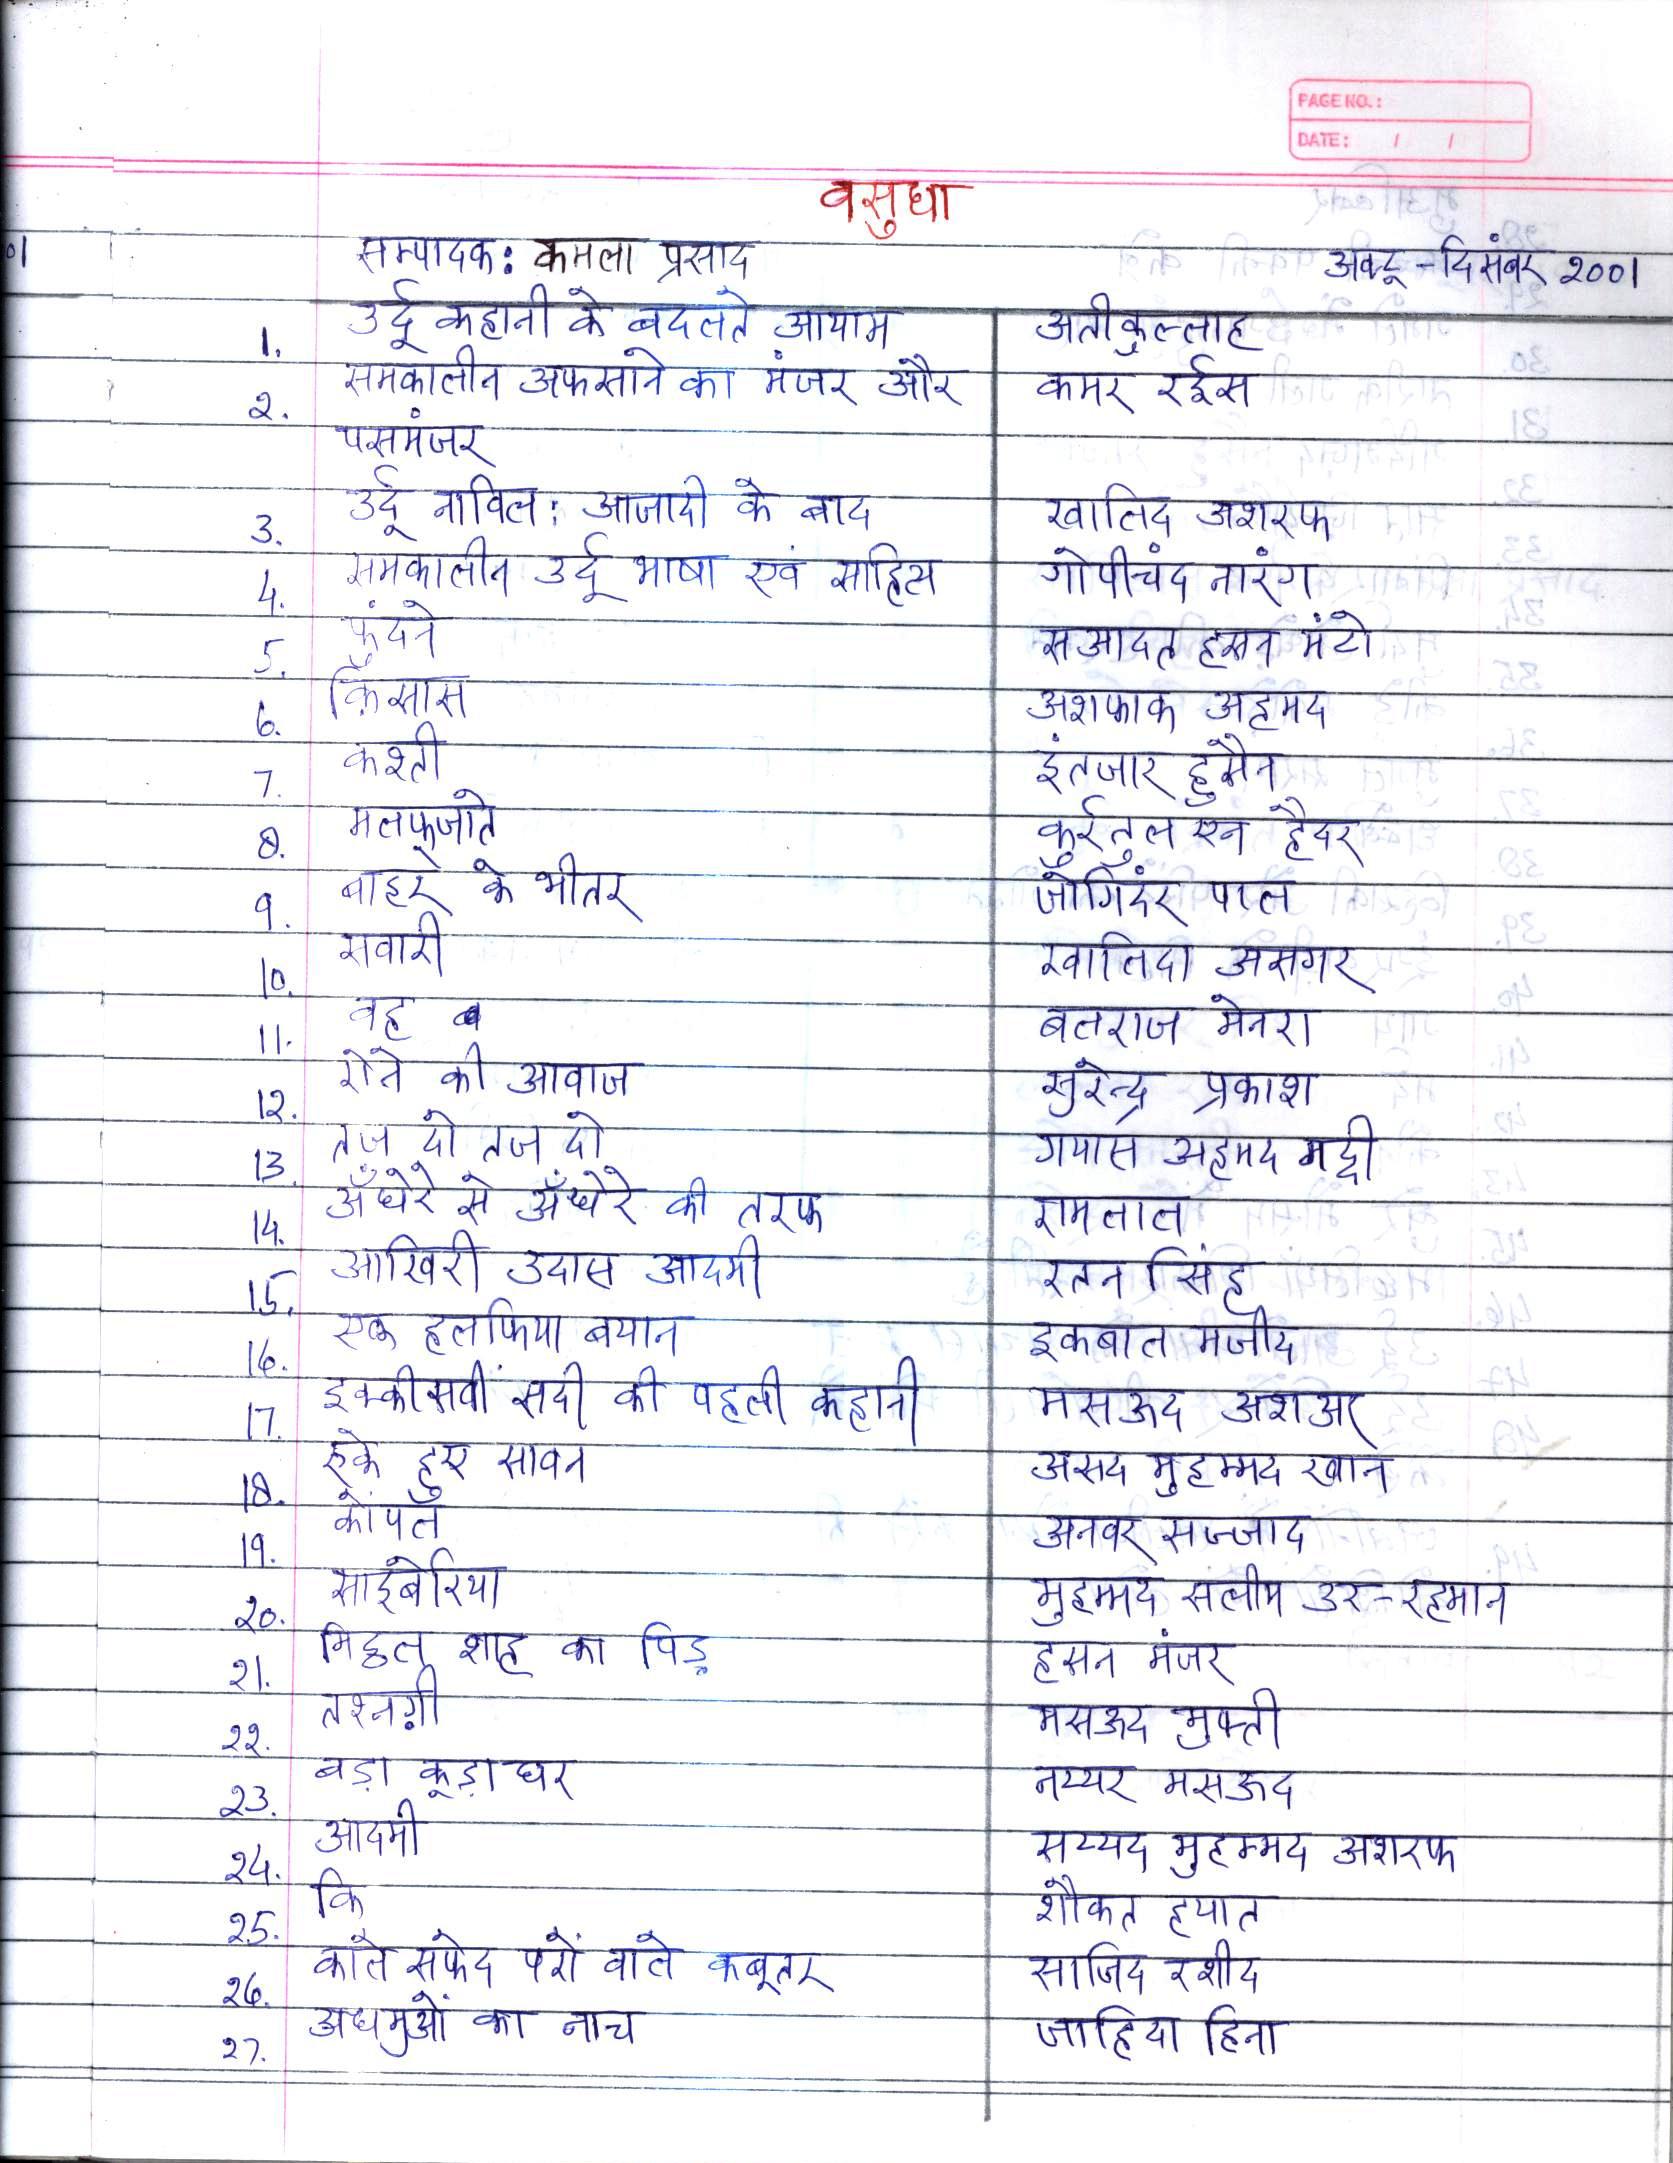 PAGE NO.:
DATE: / /
वसुधा
01 सम्पादक: कमला प्रसाद अक्टू-दिसंबर 2001
1. उर्दू कहानी के बदलते आयाम अतीकुल्लाह
2. समकालीन अफसाने का मंजर और कमर रईस
पसमंजर
3. उर्दू नाविल: आजादी के बाद खालिद अशरफ
4. समकालीन उर्दू भाषा एवं साहित्य गोपीचंद नारंग
5. फुंदने सआदत हसन मंटो
6. क़िसास अशफाक अहमद
7. कश्ती इंतजार हुसैन
8. मलफूजाते कुर्रतुल एन हैदर
9. बाहर के भीतर जोगिंदर पाल
10. सवारी खालिदा असगर
11. वह बलराज मेनरा
12. रोने की आवाज सुरेन्द्र प्रकाश
13. तज दो तज दो गयास अहमद गद्दी
14. अँधेरे से अँधेरे की तरफ रामलाल
15. आखिरी उदास आदमी रतन सिंह
16. एक हलफिया बयान इकबाल मजीद
17. इक्कीसवीं सदी की पहली कहानी मसऊद अशअर
18. रूके हुए सावन असद मुहम्मद खान
19. कोंपल अनवर सज्जाद
20. साइबेरिया मुहम्मद सलीम उर-रहमान
21. मिठ्ठल शाह का पिड़ हसन मंजर
22. तश्नग़ी मसऊद मुफ्ती
23. बड़ा कूड़ाघर नय्यर मसऊद
24. आदमी सय्यद मुहम्मद अशरफ
25. कि शौकत हयात
26. काले सफेद परों वाले कबूतर साजिद रशीद
27. अधमुओं का नाच जाहिदा हिना